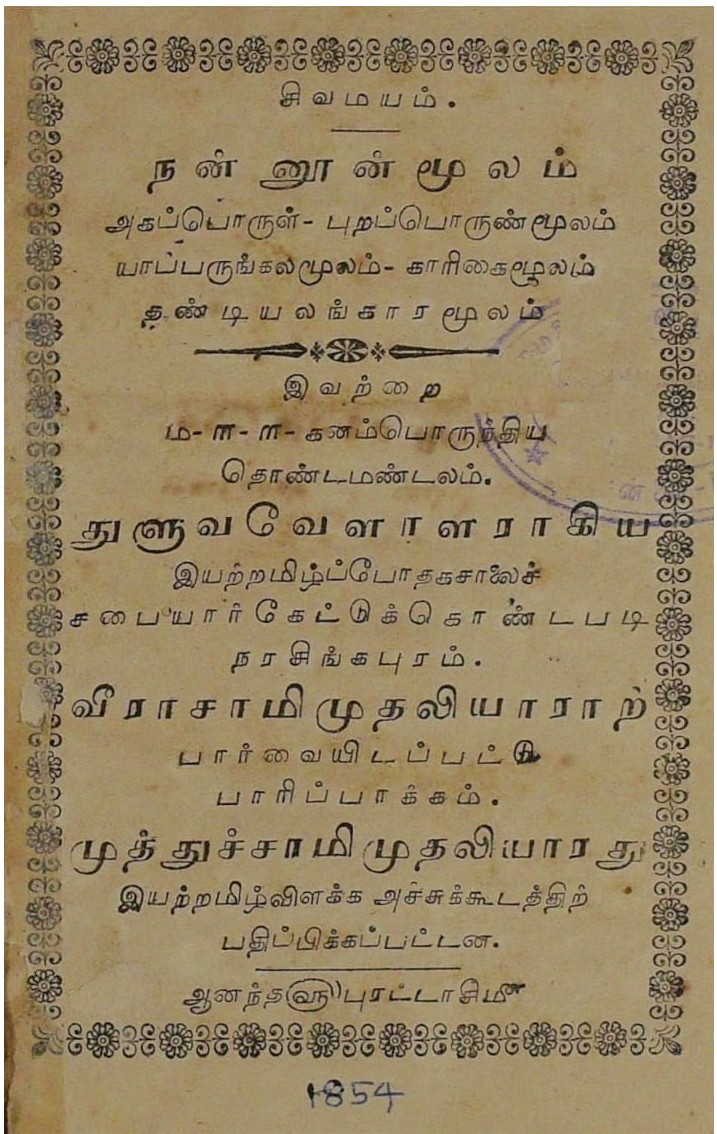 சிவமயம்.
நன்னூன்மூலம்
அகப்பொருள்- புறப்பொருண்மூலம்
யாப்பருங்கலமூலம்- காரிகைமூலம்
தண்டியலங்காரமூலம்
இவற்றை
ம-ள-ள- கனம்பொருந்திய
தொண்டமண்டலம்.
துளுவவேளாளராகிய
இயற்றமிழ்ப்போதகசாலைச்
சபையார்கேட்டுக்கொண்டபடி
நரசிங்கபுரம்.
வீராசாமிமுதலியாராற்
பார்வையிடப்பட்டு
பாரிப்பாக்கம்.
முத்துச்சாமிமுதலியாரது
இயற்றமிழ்விளக்க அச்சுக்கூடத்திற்
பதிப்பிக்கப்பட்டன.
ஆனந்த௵ புரட்டாசி௴
1854